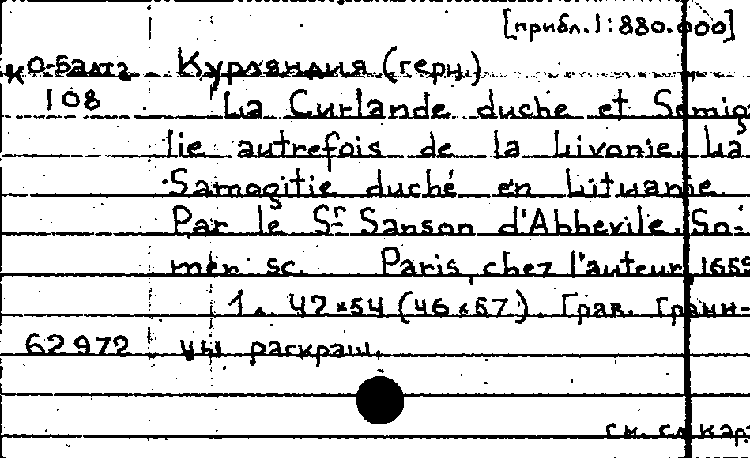 [прибл. 1:880.000]
К О-Балт2 Курляндия (герц.)
108 La Curlande duche et Semiga
lie autrefois de la Livonie. La
Samogitie duché en Lituanie.
Par le Sr Sanson d'Abbevile. So-
mer sc. Paris, chez l'auteur, 1659
1 л. 47×54 (46×57). Грав. Грани-
62972 цы раскраш.
см. сл. кар